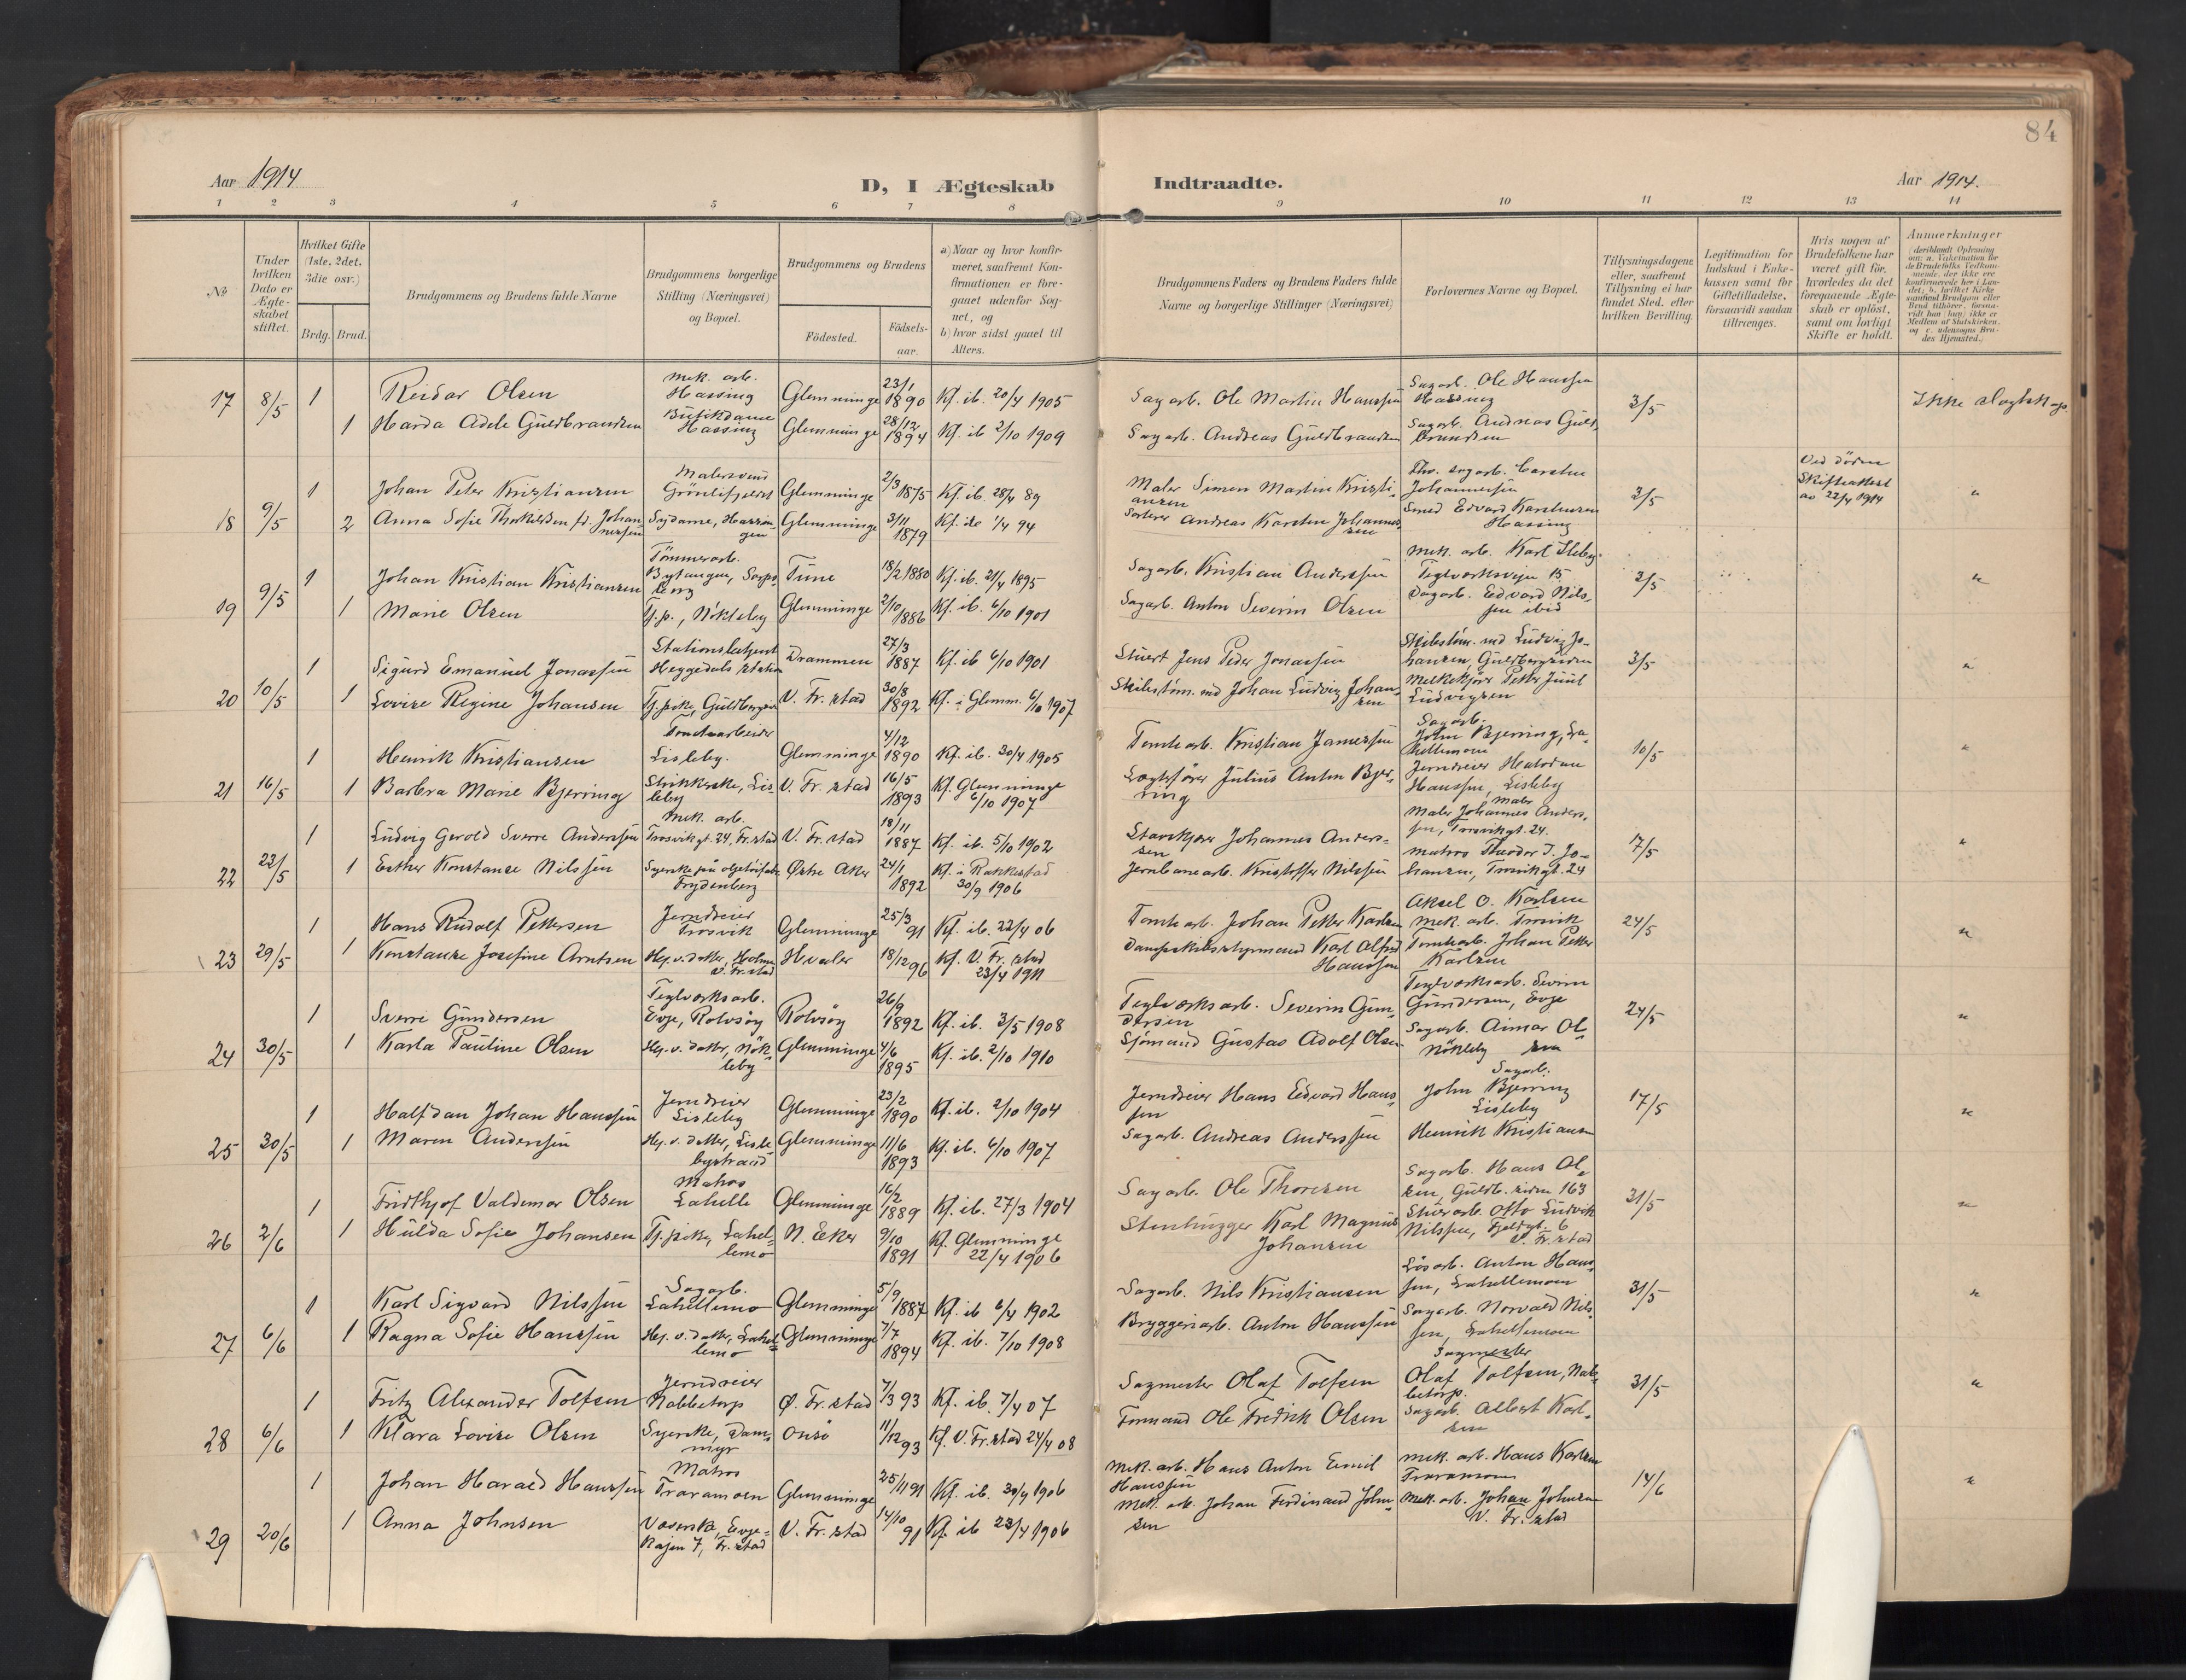 84
Aar 1914
D, I Ægteskab
Indtraadte.
Aar 1914.
1 2 3 4 5 6 7 8 9 10 11 12 13 14
№
Under hvilken Dato er Ægteskabet stiftet.
Hvilket Gifte (1ste, 2det, 3die osv.)
Brdg. Brud.
Brudgommens og Brudens fulde Navne
Brudgommens borgerlige Stilling (Næringsvei) og Bopæl.
Brudgommens og Brudens
Födested.
Födselsaar.
a) Naar og hvor konfirmeret, saafremt Konfirmationen er foregaaet udenfor Sognet, og
b) hvor sidst gaaet til Alters.
Brudgommens Faders og Brudens Faders fulde Navne og borgerlige Stillinger (Næringsvei)
Forlovernes Navne og Bopæl.
Tillysningsdagene eller, saafremt Tillysning ei har fundet Sted, efter hvilken Bevilling.
Legitimation for Indskud i Enkekassen samt for Giftetilladelse, forsaavidt saadan tiltrænges.
Hvis nogen af Brudefolkene har været gift för, hvorledes da det foregaaende Ægteskab er oplöst, samt om lovligt Skifte er holdt.
Anmærkninger
17 8/5 1 Reidar Olsen mek. arb. Hassing Glemminge 23/1 1890 Kf. ib. 20/4 1905 Sagarb. Ole Martin Hanssen Sagarb. Ole Hanssen Hassing 3/5 Ikke slegtskap
1 Harda Adele Guldbrandsen Butikdame Hassing Glemminge 28/12 1894 Kf. ib 2/10 1909 Sagarb. Andreas Guldbrandsen Sagarb. Andreas Guldbrandsen
18 9/5 1 Johan Peter Kristiansen Malersvend Grönlifjeldet Glemminge 2/3 1875 Kf. ib. 28/4 89 Maler Simon Martin Kristiansen Fhv. sagarb. Carsten Johannessen 3/5 Ved döden Skifteattest av 22/4 1914 "
2 Anna Sofie Thorkildsen fd. Johannessen Sydame, Hassingen Glemminge 3/11 1879 Kf. ib 1/4 94 Sorterer Andreas Karsten Johannessen Smed Edvard Karstensen Hassing
19 9/5 1 Johan Kristian Kristiansen Tömmerarb. Bytangen, Sarpsborg Tune 18/2 1880 Kf. ib. 21/4 1895 Sagarb. Kristian Anderssen mek. arb. Karl Ileby Teglverksveien 15 3/5 "
1 Marie Olsen Tj.p., Nökleby Glemminge 2/10 1886 Kf. ib. 6/10 1901 Sagarb. Anton Severin Olsen Sagarb. Edvard Nilssen ibid
20 10/5 1 Sigurd Emanuel Jonassen Stationsbetjent Heggedals station Drammen 27/3 1887 Kf. ib 6/10 1901 Stuert Jens Peder Jonassen Skibstöm. md Ludvig Johansen, Guldbergsiden 3/5 "
1 Lovise Regine Johansen Tj.pike, Guldbergsiden V. Fr.stad 30/8 1892 Kf. i Glemm. 6/10 1907 Skibstöm. md Johan Ludvig Johansen Melkekjörer Petter Juul Ludvigsen
21 16/5 1 Henrik Kristiansen Tomtearbeider Lisleby. Glemminge 4/12 1890 Kf. ib. 30/4 1905 Tomtearb. Kristian Jamessen Sagarb. John Bjerring, Lahellemoen 10/5 "
1 Barbra Marie Bjerring Strikkerske, Lisleby V. Fr.stad 16/5 1893 Kf. Glemminge 6/10 1907 Lægtefører Julius Anton Bjerring Jerndreier Halvdan Hanssen, Lisleby
22 23/5 1 Ludvig Gerold Sverre Anderssen mek. arb. Trosvikgt. 24, Fr.stad V. Fr. stad 18/11 1887 Kf. ib. 5/10 1902 Johannes Anderssen Maler Johannes Anderssen, Trosvikgt. 24. 17/5 "
1 Esther Konstanse Nilssen Syerske Frydenberg Østre Aker 24/1 1892 Kf. i Rakkestad 30/9 1906 Jernbanearb. Kristoffer Nilssen matros Theodor J. Johansen, Trosvikgt. 24
23 29/5 1 Hans Rudolf Pettersen Jerndreier Trosvik Glemminge 25/3 91 Kf. ib. 22/4 06 Tomtearb. Johan Petter Karlsen Aksel O. Karlsen mek. arb. Trosvik 24/5 "
1 Konstanse Josefine Arntsen Hj.v. datter, Holmen V. Fr. stad Hvaler 18/12 96 Kf. V. Fr. stad 23/4 1911 Dampskibsstyrmand Karl Alfred Hanssen Tomtearb. Johan Petter Karlsen
24 30/5 1 Sverre Gundersen Teglverksarb. Evje, Rolvsöy Rolvsöy 26/9 1892 Kf. ib. 3/5 1908 Teglverksarb. Severin Gundersen Teglverksarb. Severin Gundersen, Evje 24/5 "
1 Karla Pauline Olsen Hj.v. datter, Nökleby Glemminge 4/6 1895 Kf. ib. 2/10 1910 Sjömand Gustav Adolf Olsen Sagarb. Aimar Olsen Nökleby
25 30/5 1 Halfdan Johan Hanssen Jerndreier Lisleby Glemminge 23/2 1890 Kf. ib. 2/10 1904 Jerndreier Hans Edvard Hanssen Sagarb. John Bjerring Lisleby 17/5 "
1 Maren Anderssen Hj.v. datter, Lislebystrand Glemminge 11/6 1893 Kf. ib. 6/10 1907 Sagarb. Andreas Anderssen Henrik Kristiansen
26 2/6 1 Fridthjof Valdemar Olsen Matros Lahelle Glemminge 16/2 1889 Kf. ib. 27/3 1904 Sagarb. Ole Thoresen Sagarb. Hans Olsen, Guldb. siden 163 31/5 "
1 Hulda Sofie Johansen Tj.pike, Lahellemo N. Eker 9/10 1891 Kf. Glemminge 22/4 1906 Stenhugger Karl Magnus Johansen Otto Ludvik Nilssen, Fjeldgt. 6 V. Fr. stad
27 6/6 1 Karl Sigvard Nilssen Sagarb. Lahellemo Glemminge 5/9 1887 Kf. ib 6/4 1902 Sagarb. Nils Kristiansen Lösarb. Anton Hanssen, Lahellemoen 31/5 "
1 Ragna Sofie Hanssen Hj.v. datter, Lahellemo Glemminge 7/7 1894 Kf. ib. 7/10 1908 Bryggeriarb. Anton Hanssen Sagarb. Norvald Nilssen, Lahellemoen
28 6/6 1 Fritz Alexander Tolfsen Jerndreier Nabbetorp Ø. Fr. stad 7/3 93 Kf. ib. 7/4 07 Sagmester Olaf Tolfsen Sagmester Olaf Tolfsen, Nabbetorp. 31/5 "
1 Klara Lovise Olsen Syerske, Dammyr Onsö 11/12 93 Kf. V. Fr.stad 24/4 08 Formand Ole Fredrik Olsen Sagarb. Albert Karlsen
29 20/6 1 Johan Harald Hanssen Matros Traramoen Glemminge 25/11 91 Kf. ib. 30/4 1906 mek. arb. Hans Anton Emil Hanssen mek. arb. Hans Karlsen Traramoen 14/6 "
1 Anna Johnsen Væverske, Evjekajen 7, Fr. stad V. Fr. stad 14/10 91 Kf. ib 23/4 1906 Mek. arb. Johan Ferdinand Johnsen mek. arb. Johan Johnsen V. Fr. stad